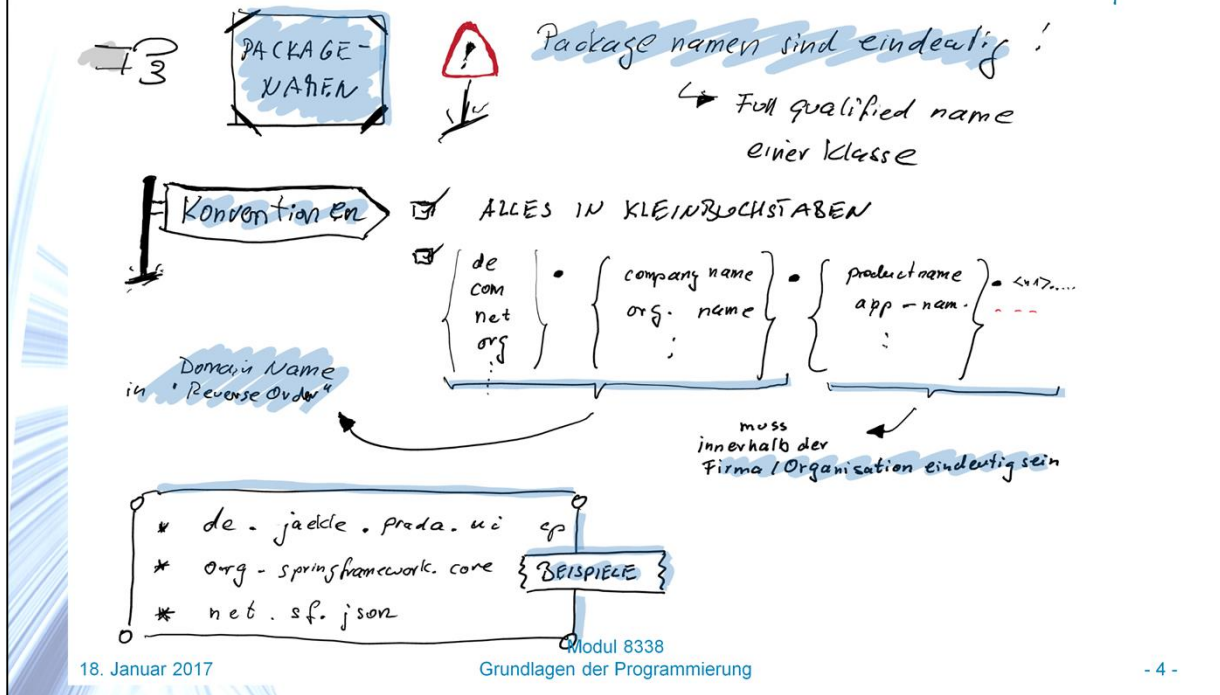 3
PACKAGE-
NAMEN
!
Package namen sind eindeutig !
Full qualified name
einer Klasse
Konventionen
ALLES IN KLEINBUCHSTABEN
de
com
net
org
⋮
•
company name
org. name
⋮
•
productname
app-nam.
⋮
•
Domain Name
in "Reverse Order"
muss
innerhalb der
Firma / Organisation eindeutig sein
* de. jaekle. prada. ui
* org. springframework. core
* net. sf. json
BEISPIELE
18. Januar 2017
Modul 8338
Grundlagen der Programmierung
- 4 -